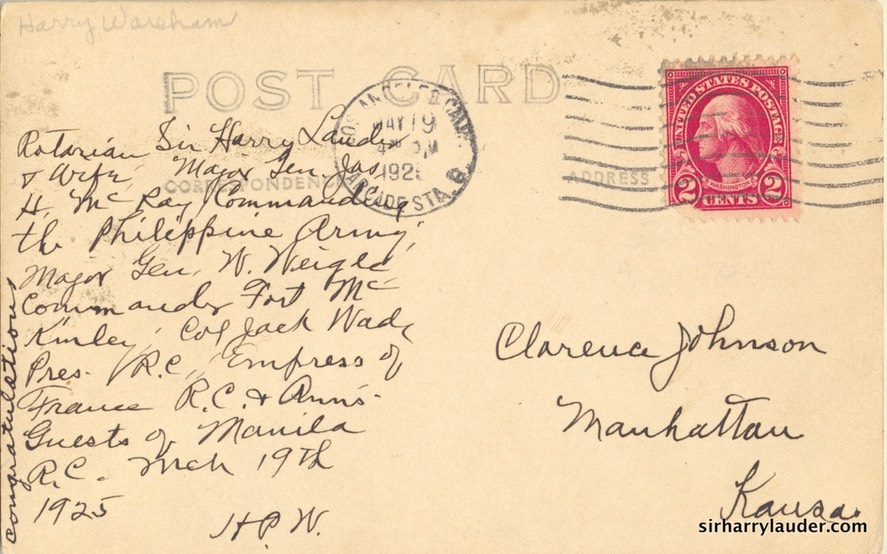 Harry Wareham
POST CARD
LOS ANGELES CALIF.
MAY 19
4 PM
192
ARCADE STA.
CORRESPONDENCE
ADDRESS
UNITED STATES POSTAGE
WASHINGTON
2 CENTS 2
Rotarian Sir Harry Lauder
& Wife, Major Gen. Jas.
H. McRay Commanding
the Philippine Army,
Major Gen. W. Weigle
Commander Fort Mc
Kinley, Col Jack Wade
Pres. R.C., Empress of
France R.C. & Anns-
Guests of Manila
R.C. - Mch 19th
1925
H.P.W.
Congratulations
Clarence Johnson
Manhattan
Kansas
sirharrylauder.com